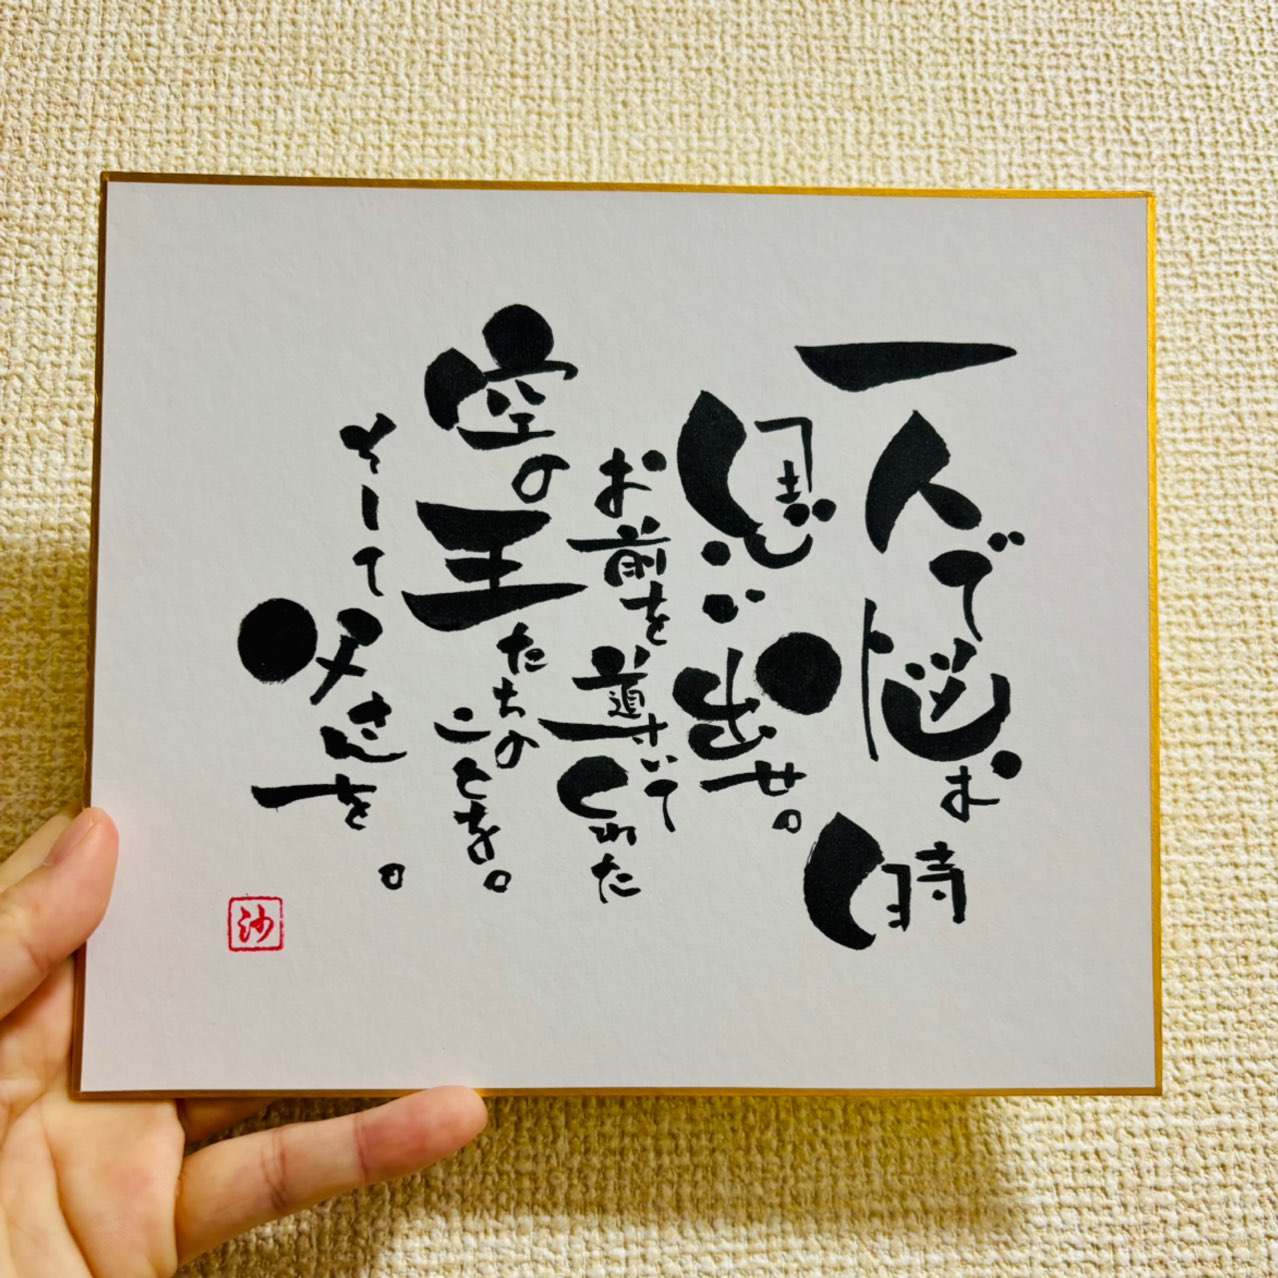 一人で悩む時
思い出せ。
お前を導いてくれた
空の王たちのことを。
そして父さんを。
沙